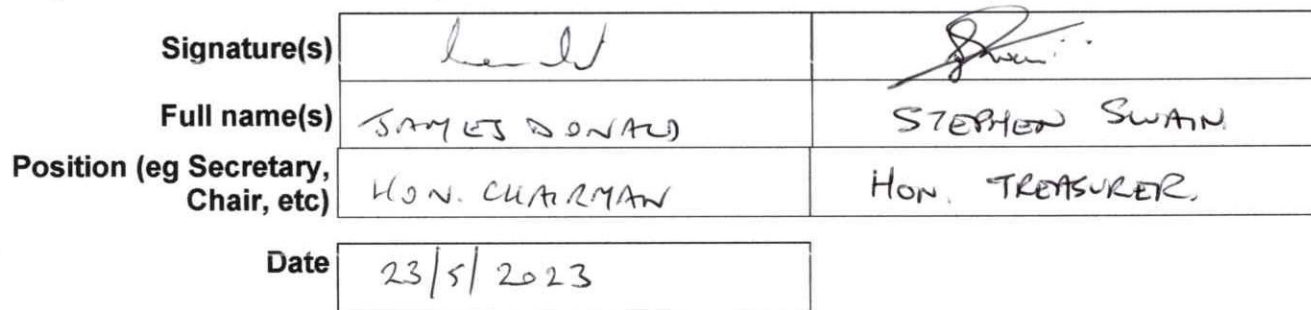 Signature(s)
Full name(s) JAMES DONALD STEPHEN SWAIN
Position (eg Secretary,
Chair, etc) HON. CHAIRMAN HON. TREASURER.
Date 23/5/2023